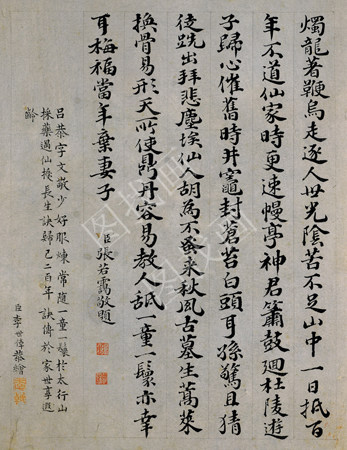 燭龍著鞭烏走逐人世光陰苦不足山中一日抵百
年不道仙家時更速幔亭神君簫鼓迴杜陵遊
子歸心催舊時井竈封蒼苔白頭耳孫驚且猜
徒跣出拜悲塵埃仙人胡為不發來秋風古墓生蒿萊
換骨易形天所使鼎丹容易教人舐一童一鬟亦幸
耳梅福當年棄妻子
臣張若靄敬題
呂恭字文敬少好服煉常隨一童一鬟於太行山
採藥遇仙授長生訣歸已二百年訣傳於家世享遐
齡
臣李世倬恭繪